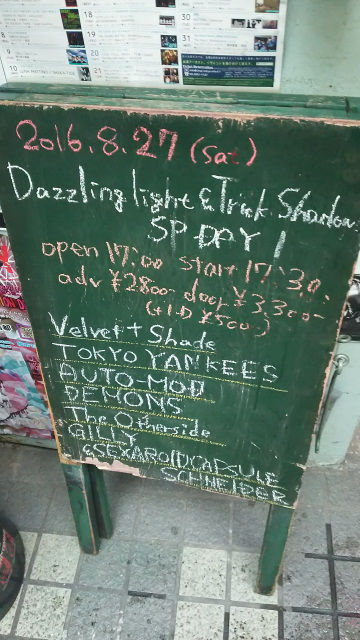 2016.8.27 (Sat)
Dazzling light & Trick Shadow
SP DAY 1
open 17:00 start 17:30.
adv ¥2800- door ¥3,300-
(+1D ¥500-)
Velvet + Shade
TOKYO YANKEES
AUTO-MOD
DEMONS
The Otherside
GILLY
@SEXAROIDCAPSULE
SCHNEIDER